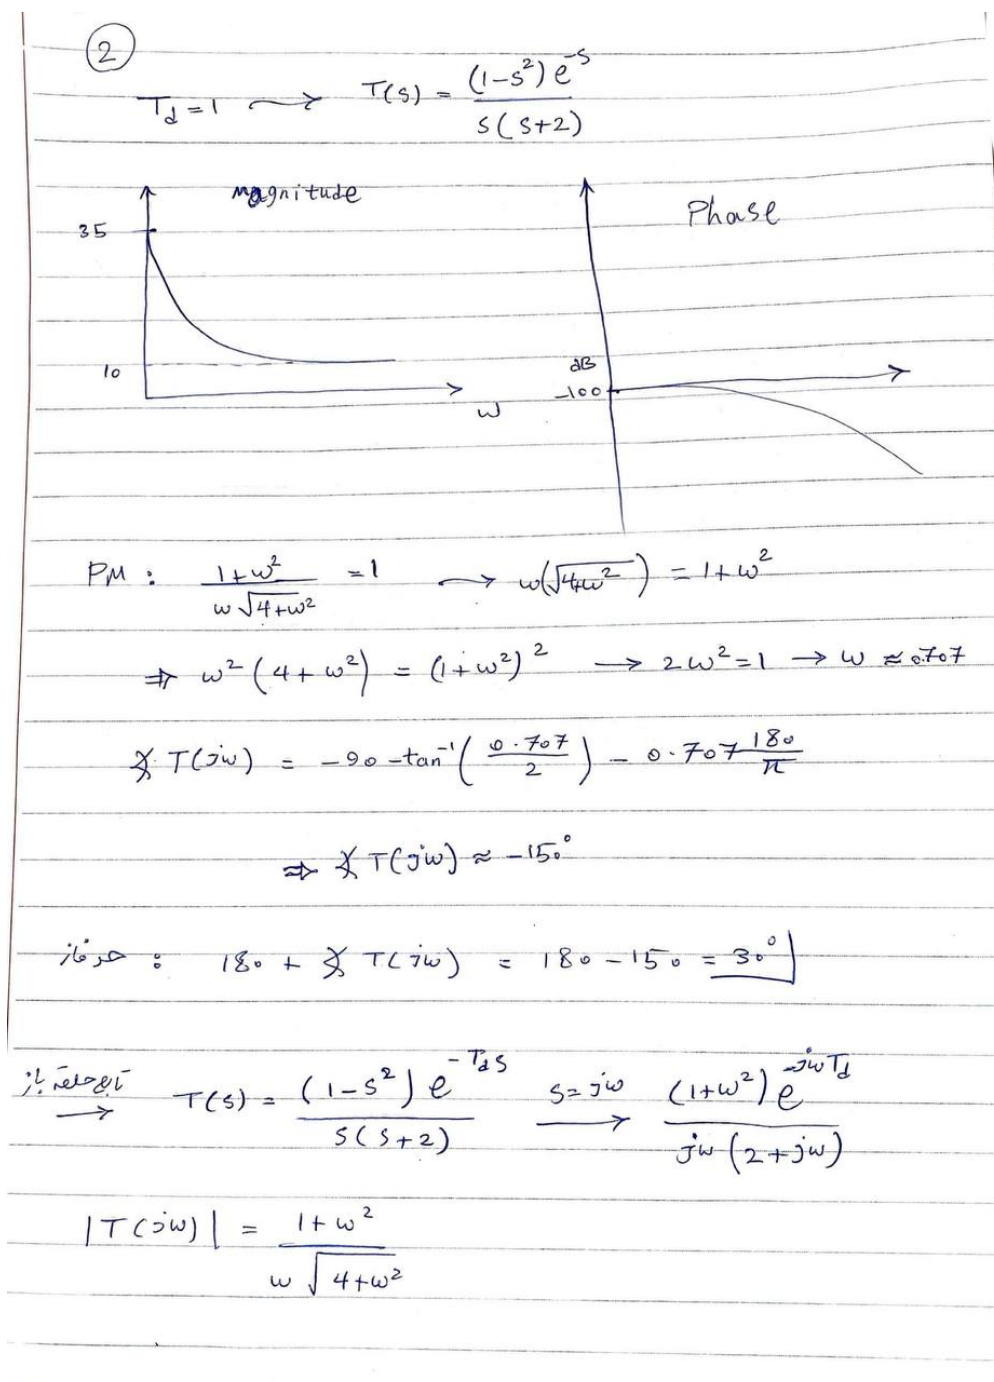 2
T_d = 1 → T(s) = (1-s²) e^-s / s(s+2)
magnitude
Phase
35
10
ω
dB
-100
PM : 1+ω² / ω√4+ω² = 1 → ω(√4+ω²) = 1+ω²
⇒ ω² (4+ω²) = (1+ω²)² → 2ω² = 1 → ω ≈ 0.707
∡ T(jω) = -90 -tan⁻¹(0.707 / 2) - 0.707 180/π
⇒ ∡ T(jω) ≈ -150°
حد فاز : 180 + ∡ T(jω) = 180 - 150 = 30°
تابع حلقه باز → T(s) = (1-s²) e^-T_d s / s(s+2) s=jω → (1+ω²) e^-jωT_d / jω(2+jω)
|T(jω)| = 1+ω² / ω√4+ω²